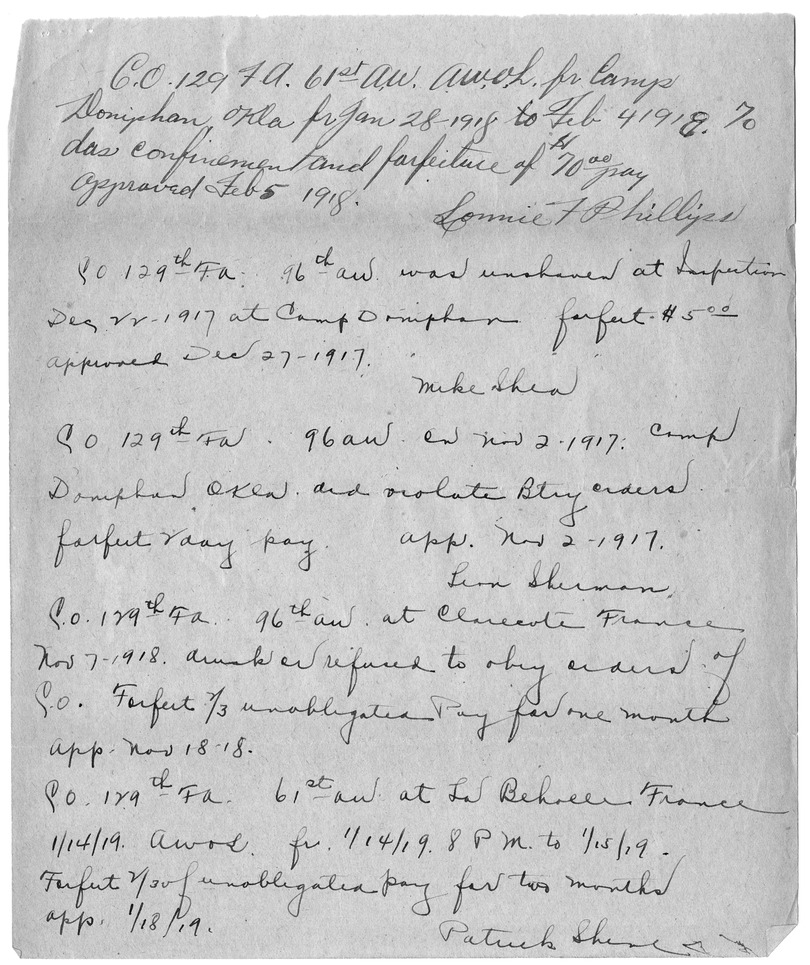 C.O. 129 F.A. 61st A.W. A.W.O.L. fr Camp
Doniphan, Okla fr Jan 28-1918 to Feb 4 1918. 70
das confinement and forfeiture of $70.00 pay
approved Feb 5 1918.
Lonnie F Phillips
C O 129th Fa. 96th aw. was unshaven at Inspection
Dec 22-1917 at Camp Doniphan forfert $5.00
approved Dec 27-1917.
Mike Shea
C O 129th Fa. 96 aw. on Nov 2-1917. Camp
Doniphan Okla. did violate Btry orders.
forfert 2 day pay. app. Nov 2-1917.
Leon Sherman.
C.O. 129th Fa. 96th aw. at Clarecote France
Nov 7-1918. drunk or refused to obey orders of
C.O. Forfert 2/3 unobligated Pay for one month
app. Nov 18-18.
C.O. 129th Fa. 61st aw. at La France
1/14/19. Awol. fr. 1/14/19. 8 P M. to 1/15/19.
Forfert 2/3 of unobligated pay for two months
app. 1/18/19.
Patrick